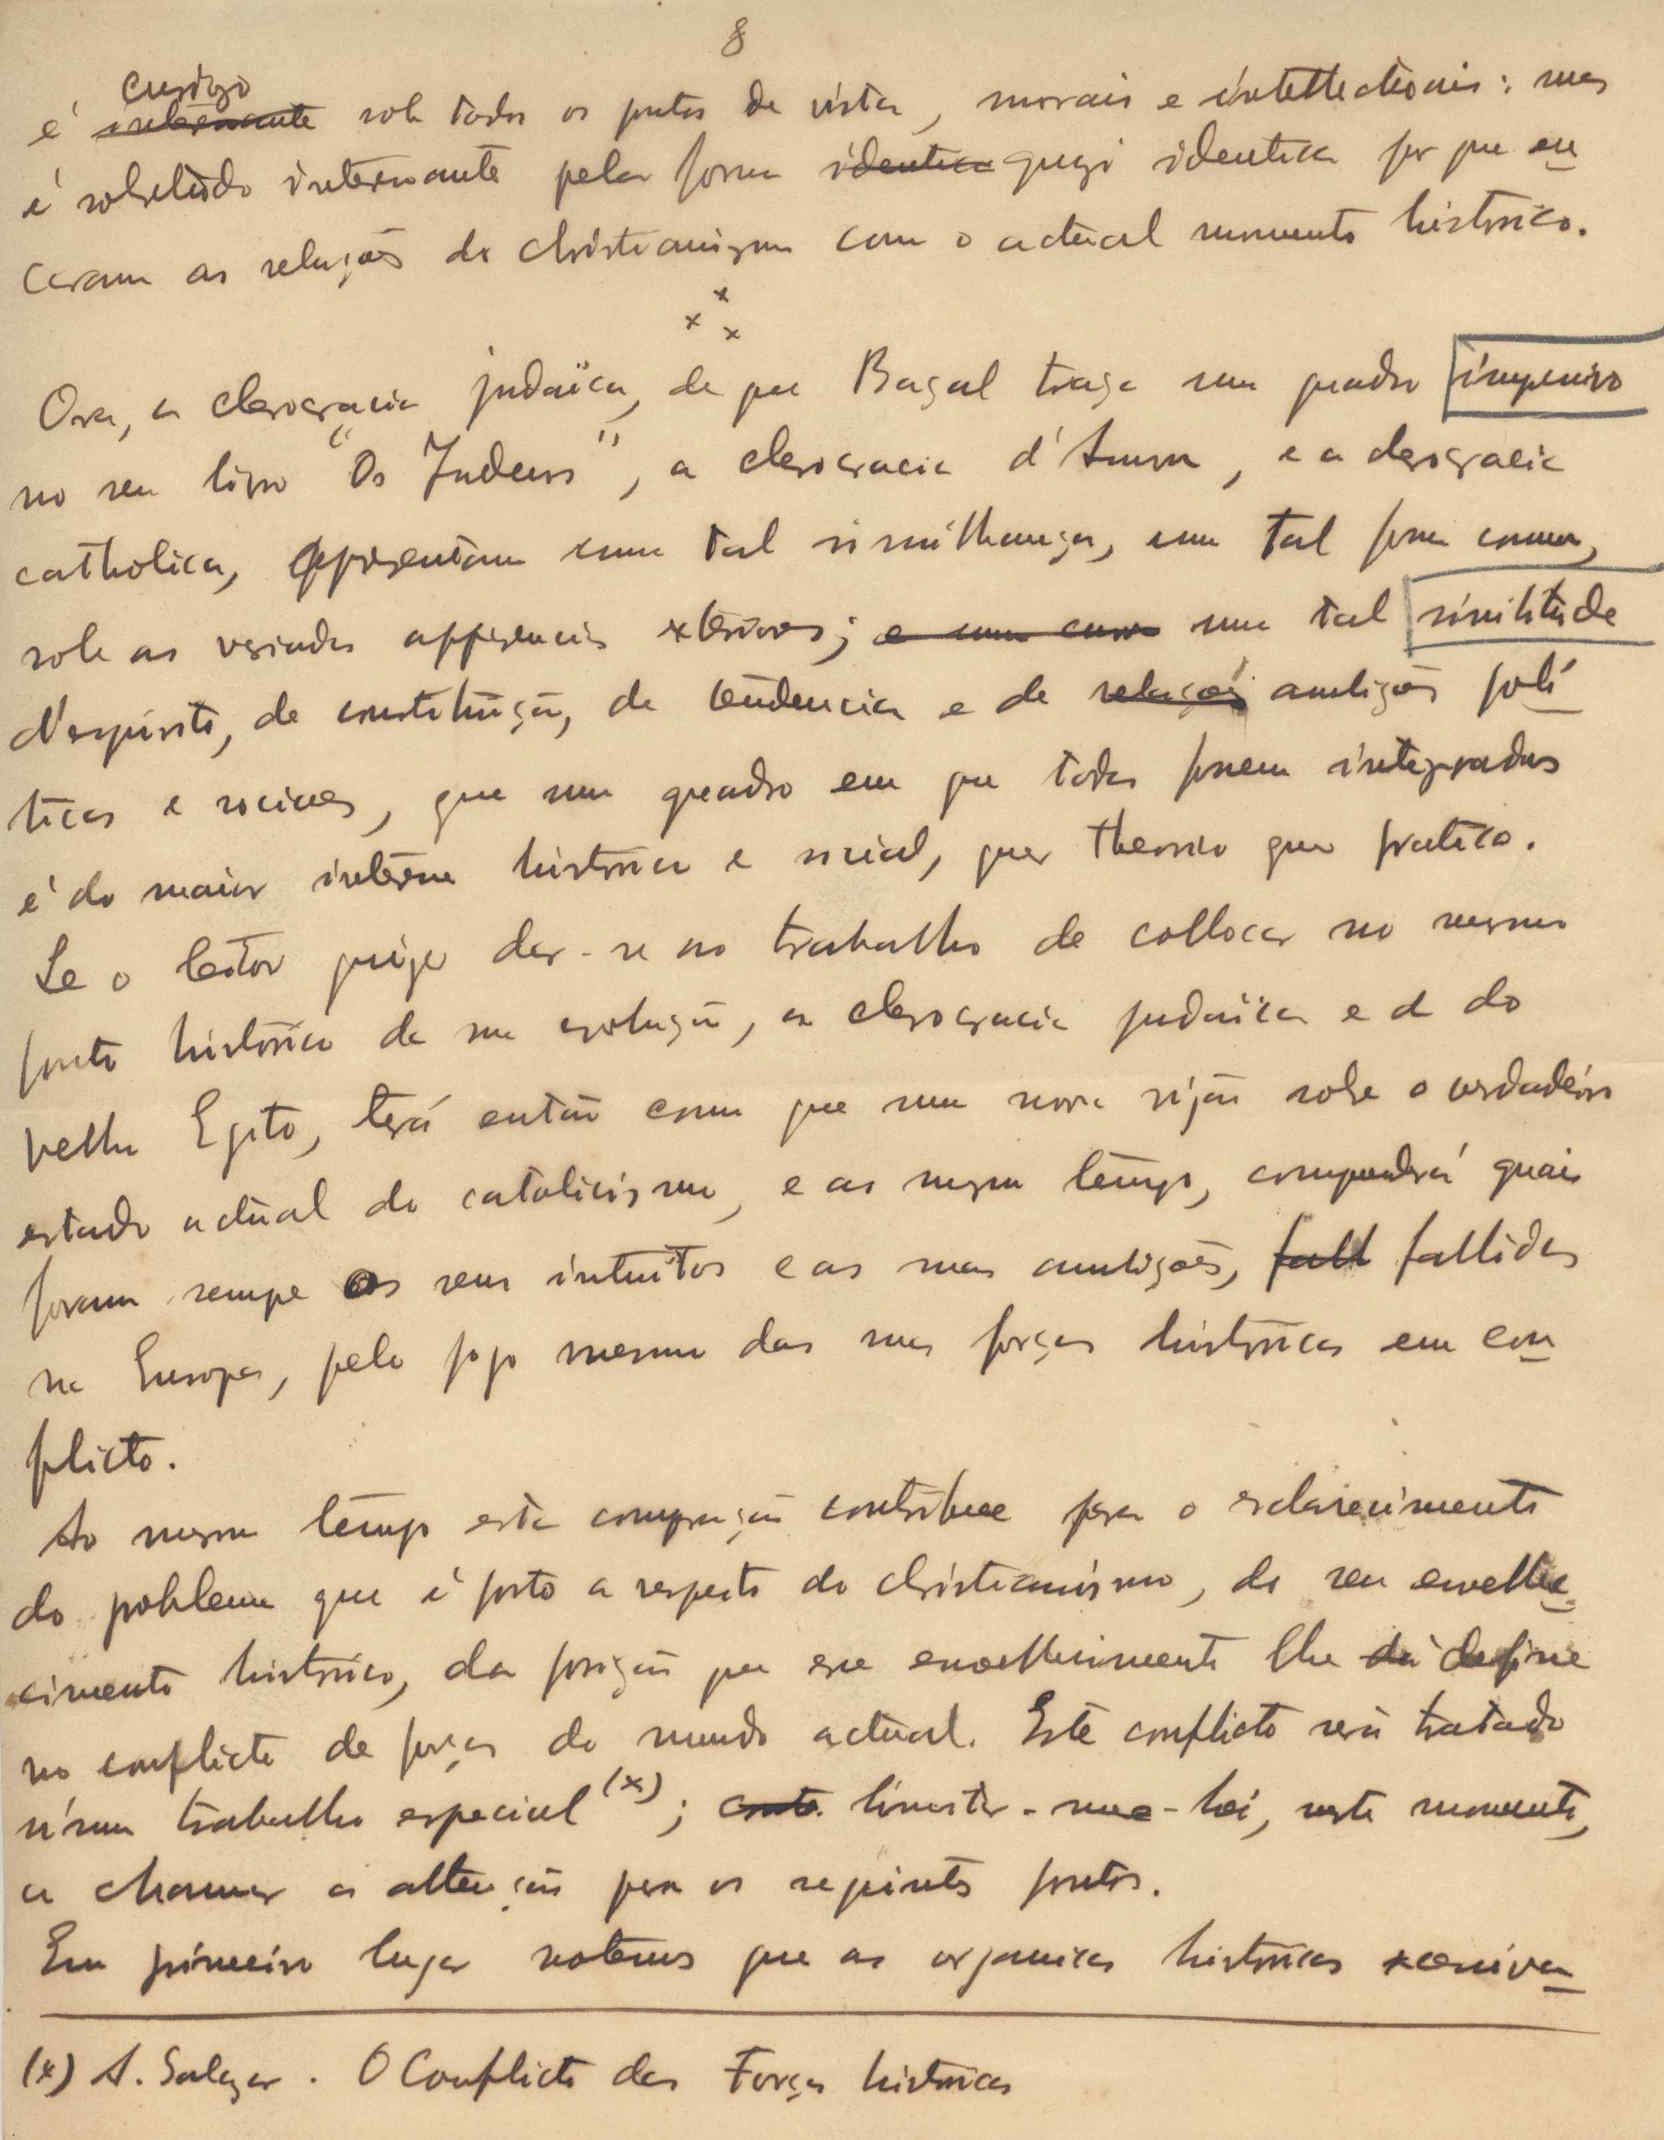 8
curioso
é interessante sob todos os pontos de vista, morais e intellectuais: mas
é sobretudo interessante pela forma identica quazi identica por que en
caram as relações do christianismo com o actual momento historico.
x x x
Ora, a clerocracia judaïca, de que Bazal traça um quadro impressivo
no seu livro "Os Judeus", a clerocracia d'Amon, e a clerocracia
catholica, appresentam uma tal similhança, uma tal forma comum,
sob as variadas apparencias exteriores; e uma uma tal similitude
d'espirito, de constituição, de tendencia e de relações ambições poli
ticas e sociaes, que um quadro em que todas fossem integradas
é do maior interesse historico e social, quer theorico quer pratico.
Se o leitor quizer dar-se ao trabalho de collocar no mesmo
ponto historico da sua evolução, a clerocracia judaïca e a do
velho Egito, terá então como que uma nova visão sobre o verdadeiro
estado actual do catolicismo, e ao mesmo tempo, comprenderá quais
foram sempre os seus intuitos e as suas ambições, fall fallidas
na Europa, pelo jogo mesmo das suas forças historicas em con
flicto.
Ao mesmo tempo esta comparação contribue para o esclarecimento
do problema que é posto a respeito do christianismo, do seu envelhe
cimento historico, da posição que esse envelhecimento lhe dá define
no conflicto de forças do mundo actual. Este conflicto será tratado
n'um trabalho especial (x); limitar-me-hei, neste momento,
a chamar a attenção para os seguintes pontos.
Em primeiro lugar notemos que as organicas historicas
(x) A. Salazar. O Conflicto das Forças historicas